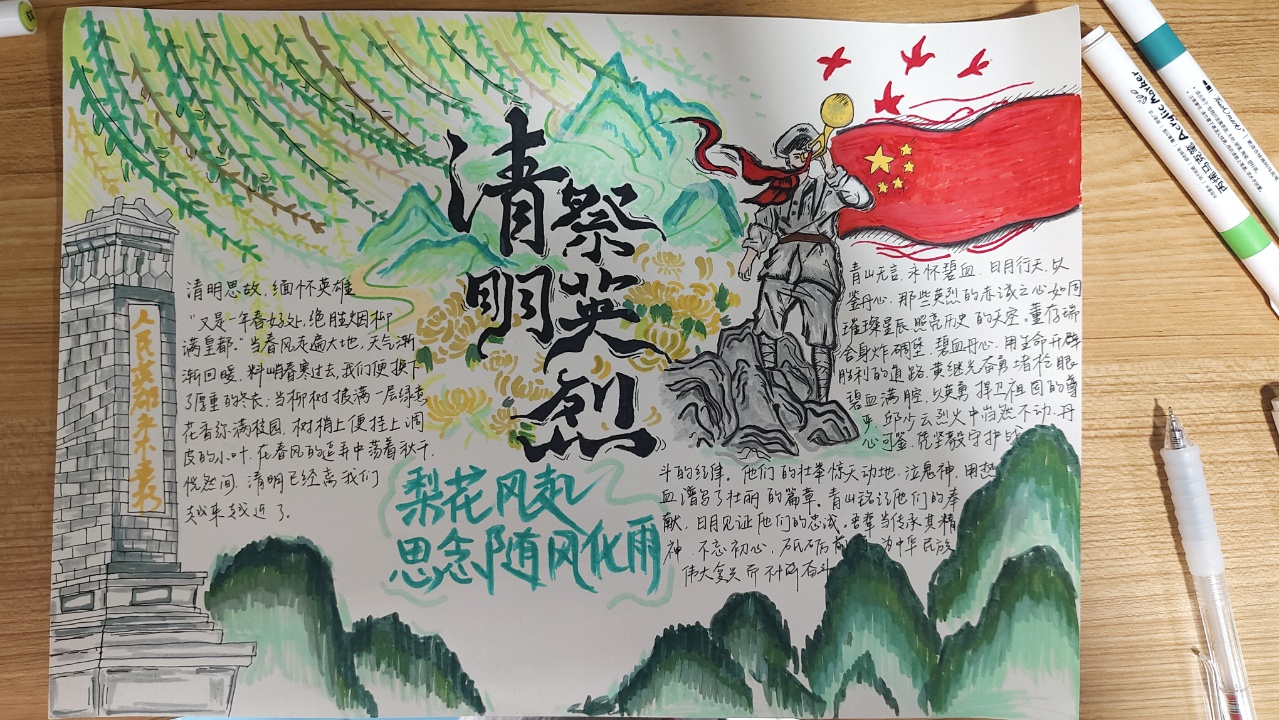 清明
祭英烈
人民英雄永垂不朽
清明思故，缅怀英雄
“又是一年春好处，绝胜烟柳
满皇都。”当春风走遍大地，天气渐
渐回暖，料峭春寒过去，我们便换下
了厚重的冬衣；当柳树披满一层绿意
花香弥满校园，树梢上便挂上调
皮的小叶，在春风的追弄中荡着秋千，
恍然间，清明已经离我们
越来越近了。
梨花风起
思念随风化雨
青山无言，永怀碧血，日月行天，以
鉴丹心。那些英烈的赤诚之心如同
璀璨星辰，照亮历史的天空。董存瑞
舍身炸碉堡，碧血丹心，用生命开辟
胜利的道路，黄继光奋勇堵枪眼
碧血满腔，以英勇捍卫祖国的尊
严，邱少云烈火中岿然不动，丹
心可鉴，凭坚毅守护战
斗的纪律。他们的壮举惊天动地，泣鬼神，用热
血谱写了壮丽的篇章。青山铭记他们的奉
献，日月见证他们的忠诚。吾辈当传承其精
神，不忘初心，砥砺前 为中华民族
伟大复兴而不断奋斗
Acrylic Marker
丙烯马克笔